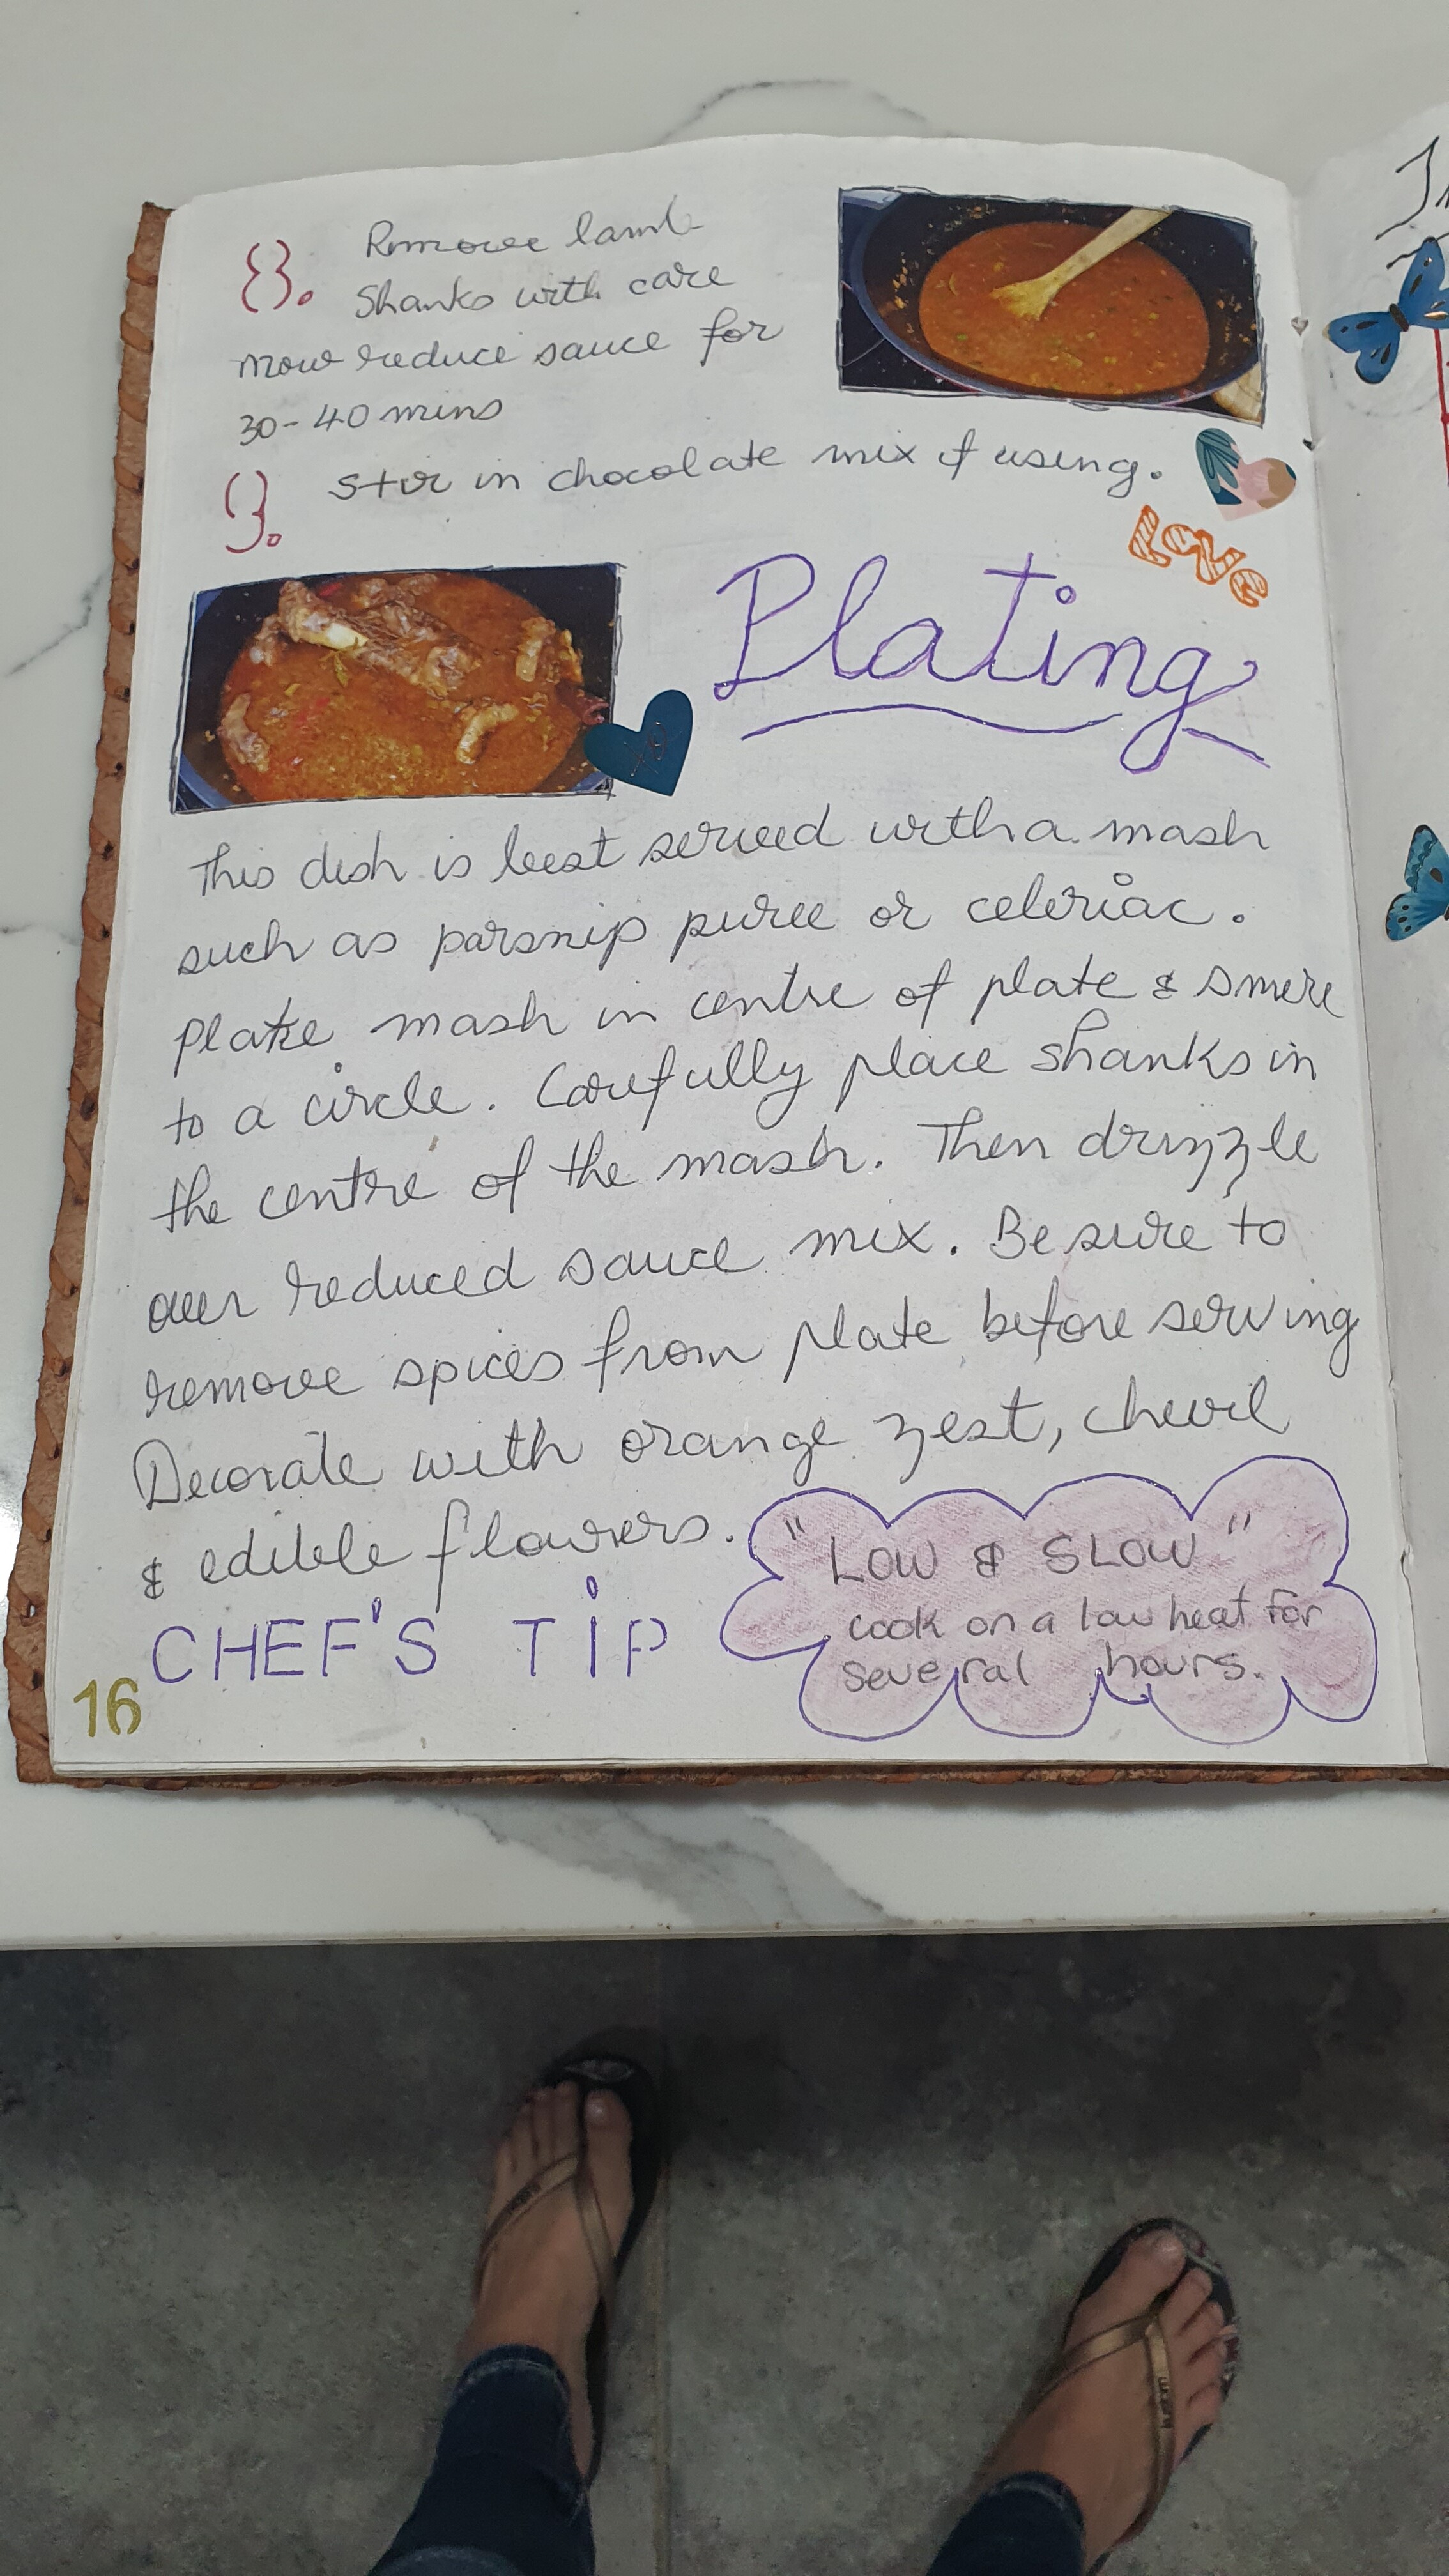 8. Remove lamb
Shanks with care
now reduce sauce for
30-40 mins
9. Stir in chocolate mix if using.
LOVE
Plating
XO
This dish is best served with a mash
such as parsnip puree or celeriac.
Plate mash in centre of plate & smere
to a circle. Carefully place shanks in
the centre of the mash. Then drizzle
over reduced sauce mix. Be sure to
remove spices from plate before serving
Decorate with orange zest, chevil
& edible flowers.
"LOW & SLOW"
cook on a low heat for
several hours.
CHEF'S TiP
16